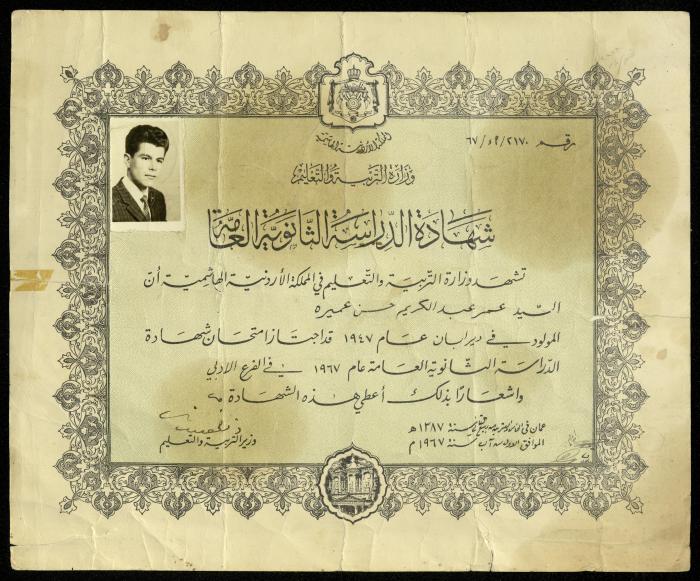 المملكة الأردنية الهاشمية
رقم ٢١٧٠/و٩/٦٧
وزارة التربية والتعليم
شهادة الدراسة الثانوية العامة
تشهد وزارة التربية والتعليم في المملكة الأردنية الهاشمية أن
السيد عمر عبد الكريم حسن عميره
المولود في ديرابان عام ١٩٤٧ قد اجتاز امتحان شهادة
الدراسة الثانوية العامة عام ١٩٦٧ في الفرع الأدبي
واشعارًا بذلك أعطي هذه الشهادة
عمان في سنة ١٣٨٧ ه
الموافق آب سنة ١٩٦٧ م
وزير التربية والتعليم